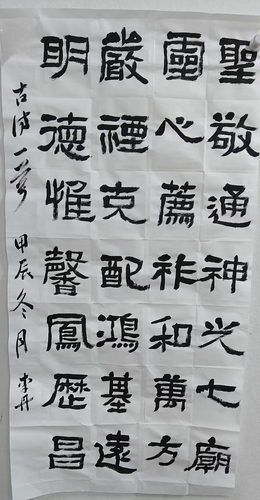 聖敬通神光七廟
靈心薦祚和萬方
嚴禋克配鴻基遠
明德惟馨鳳歷昌
古詩一首 甲辰冬月 李丹